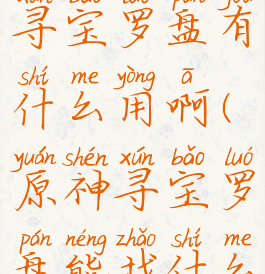 xún bǎo luó pán yǒu
寻宝罗盘有
shí me yòng ā
什么用啊(
yuán shén xún bǎo luó
原神寻宝罗
pán néng zhǎo shí me
盘能找什么